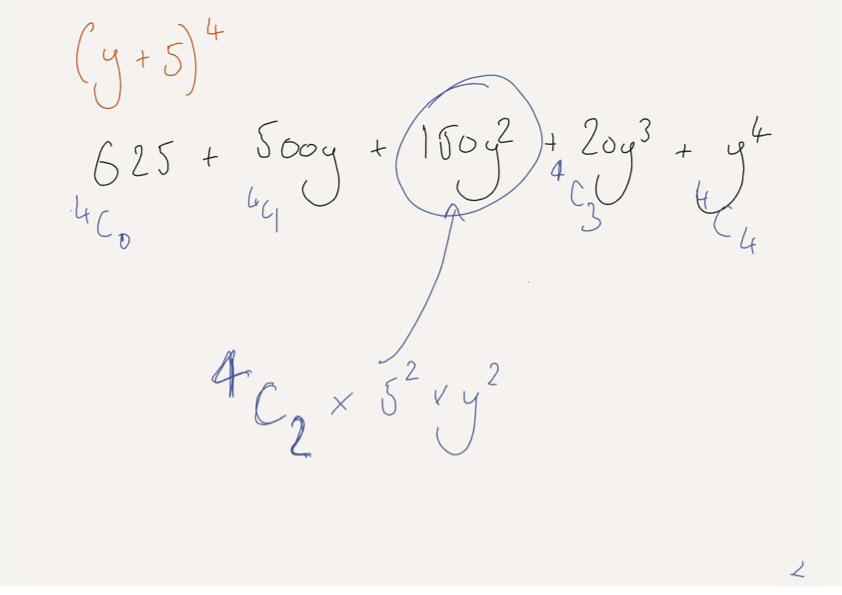 (y+5)⁴
625 + 500y + 150y² + 20y³ + y⁴
⁴C₀ ⁴C₁ ⁴C₃ ⁴C₄
⁴C₂ × 5² × y²